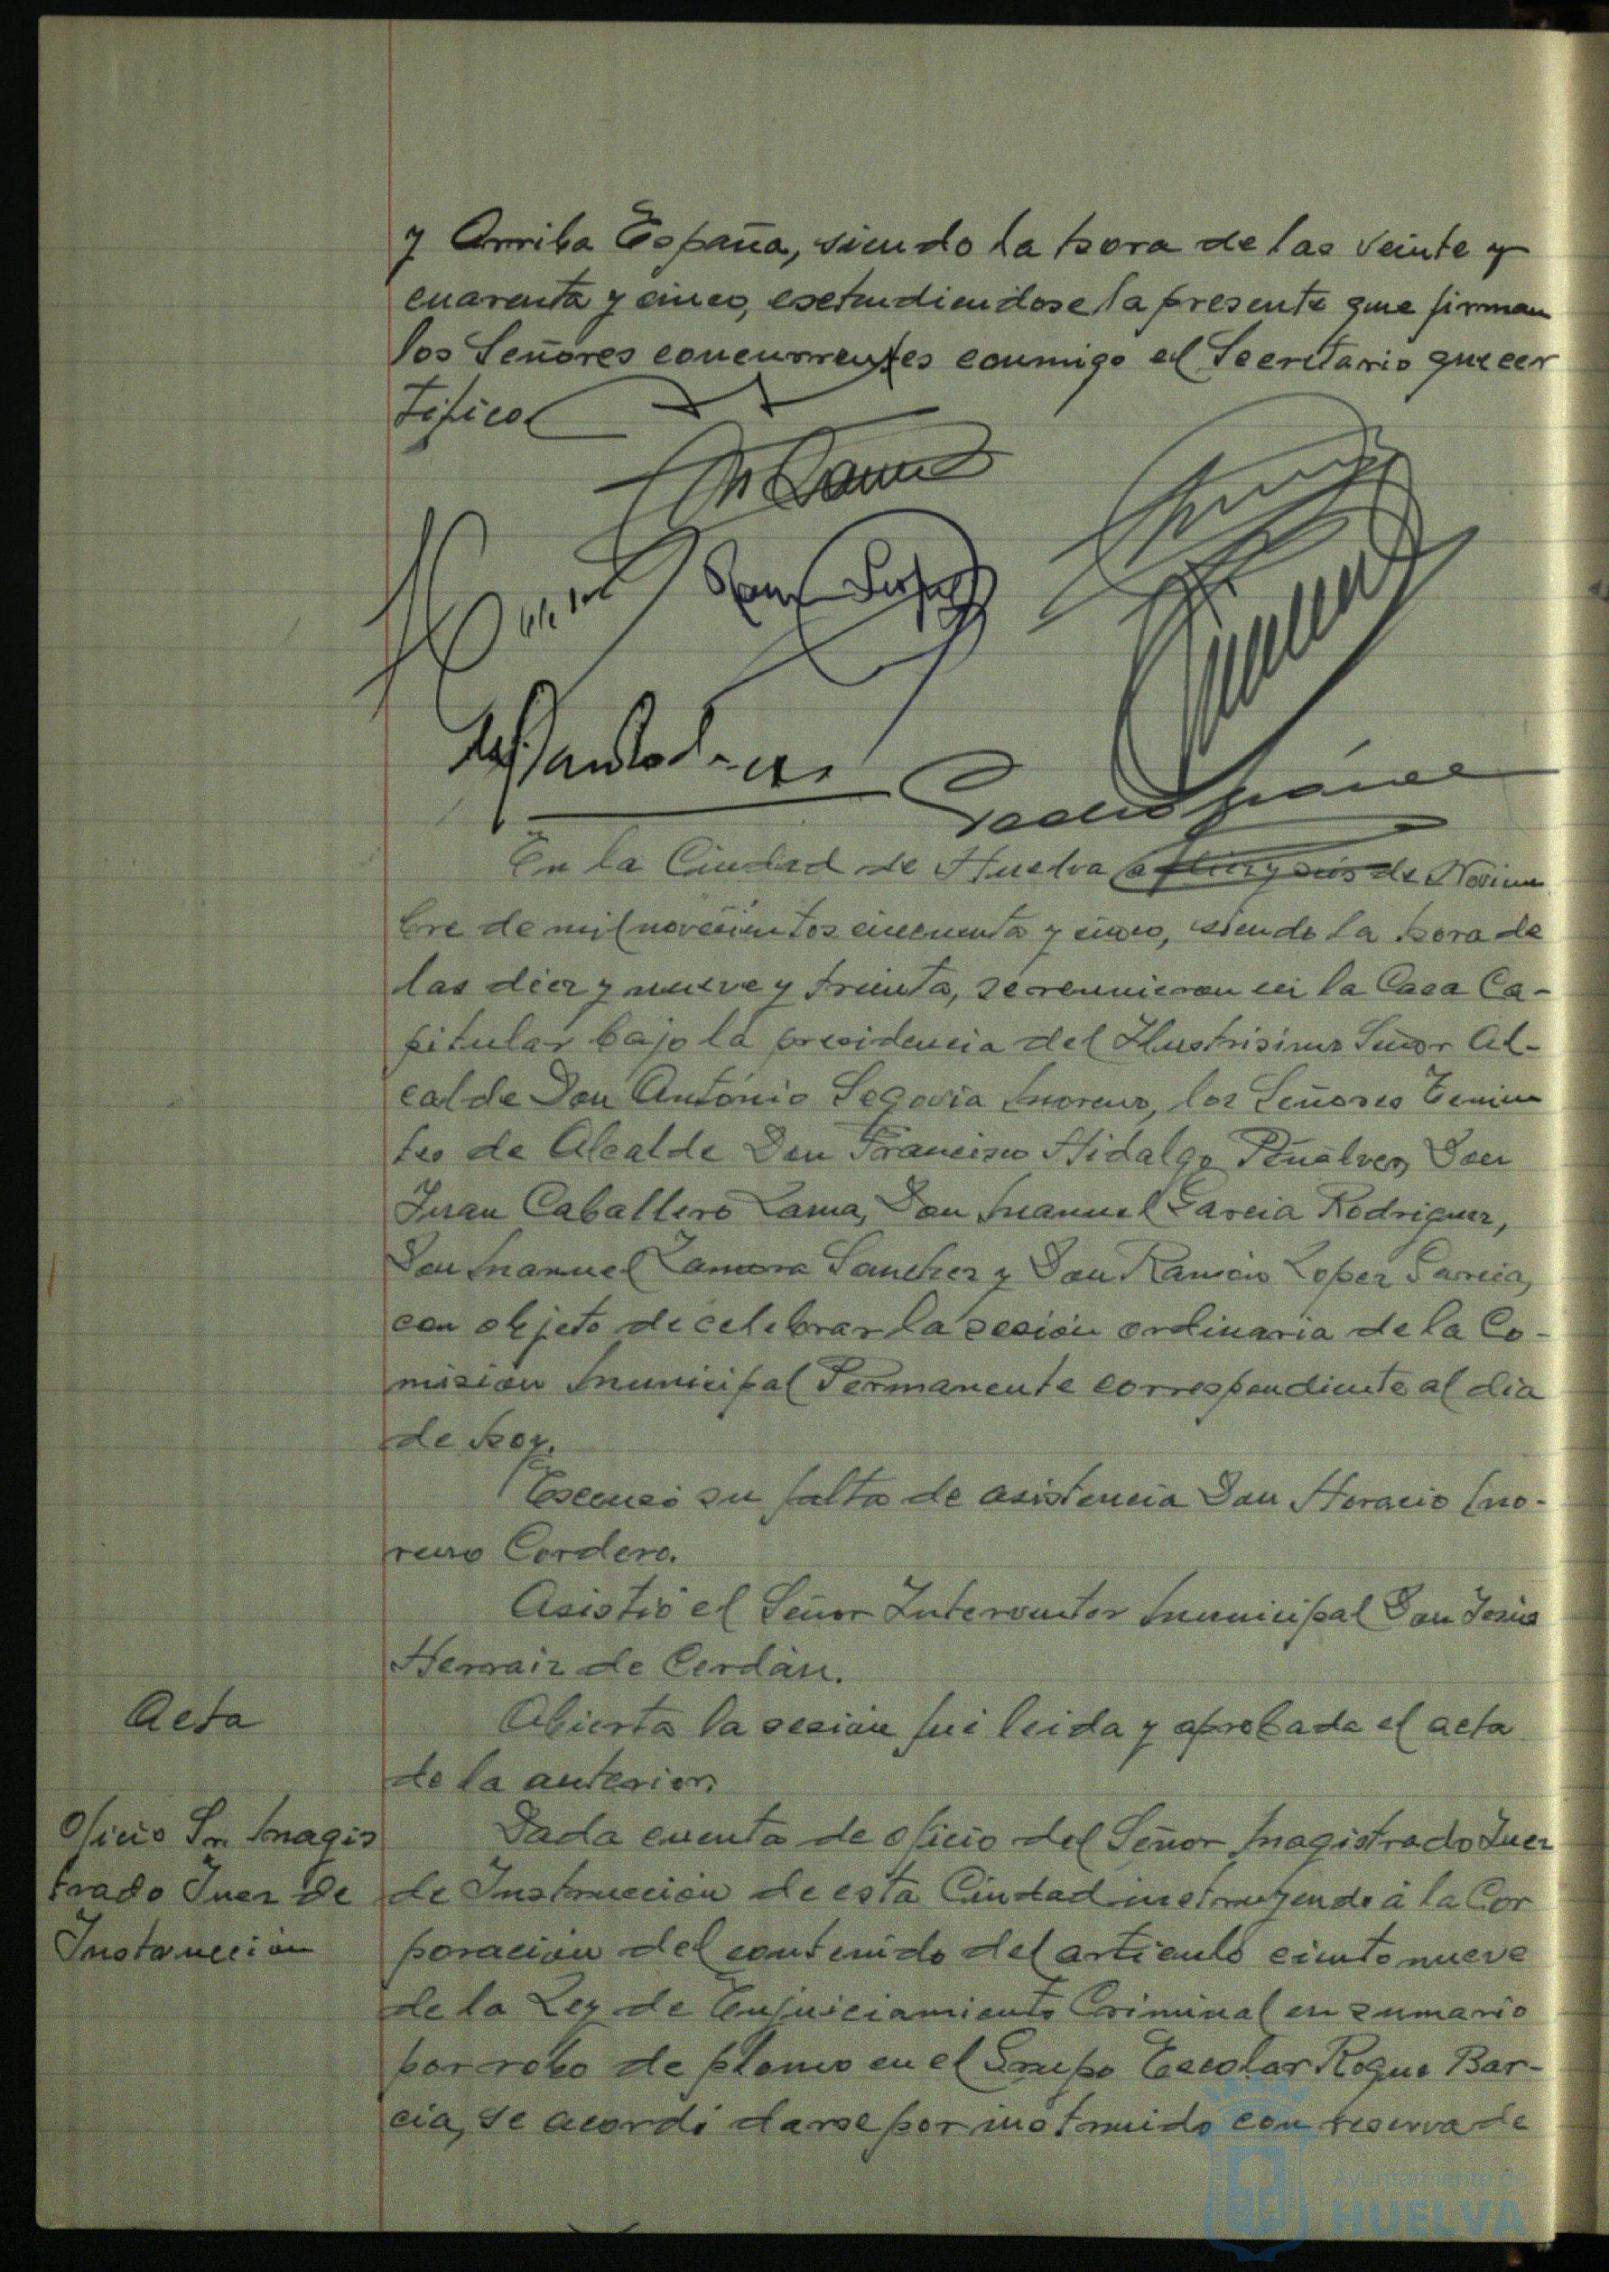 y Arriba España, siendo la hora de las veinte y
cuarenta y cinco, escetendiendose la presente que firman
los Señores concurrentes conmigo el Secretario que cer
tifico
En la Ciudad de Huelva a diez y seis de Noviem
bre de mil novecientos cincuenta y cinco, siendo la hora de
las diez y nueve y treinta, se reunieron en la Casa Ca-
pitular bajo la presidencia del Ilustrisimo Señor Al-
calde Don Antonio Segovia Moreno, los Señores Tenien
tes de Alcalde Don Francisco Hidalgo Peñalver, Don
Juan Caballero Lama, Don Manuel Garcia Rodriguez,
Don Manuel Zamora Sanchez y Don Ramón Lopez Garcia,
con objeto de celebrar la sesión ordinaria de la Co-
misión Municipal Permanente correspondiente al dia
de hoy.
Escusó su falta de asistencia Don Horacio Mo-
reno Cordero.
Asistió el Señor Interventor Municipal Don Jesús
Herraiz de Cerdán.
Acta
Abierta la sesión fué leida y aprobada el acta
de la anterior.
Oficio Sr. Magis
trado Juez de
Instrucción
Dada cuenta de oficio del Señor Magistrado Juez
de Instrucción de esta Ciudad instruyendo á la Cor
poración del contenido del artículo ciento nueve
de la Ley de Enjuiciamiento Criminal en sumario
por robo de plomo en el Grupo Escolar Roque Bar-
cia, se acordó darse por instruido con reserva de
Ayuntamiento de
HUELVA